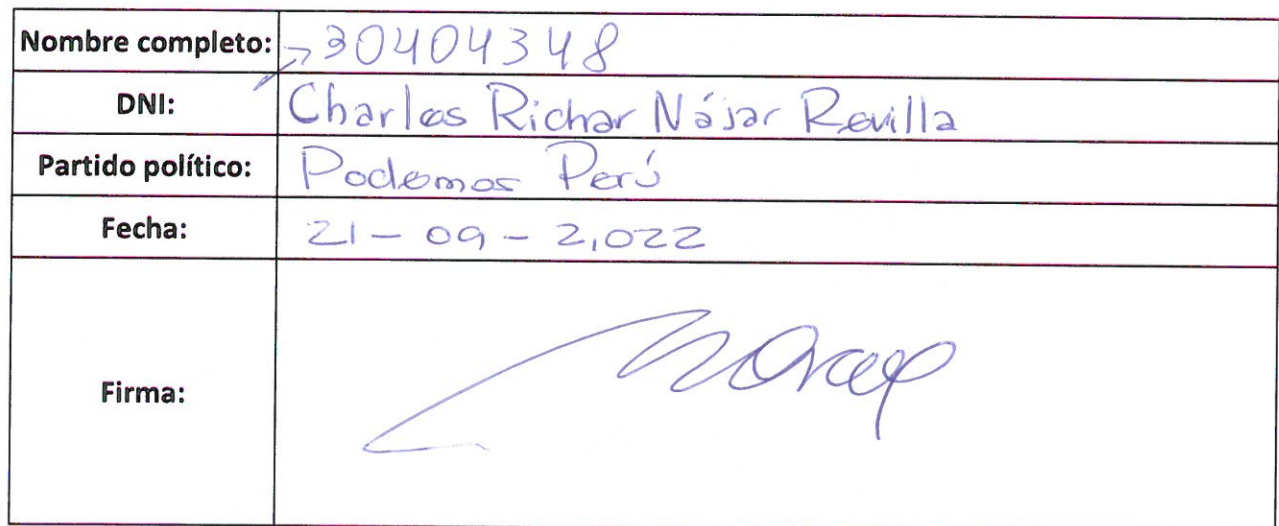 Nombre completo: 30404348
DNI: Charles Richar Nájar Revilla
Partido político: Podemos Perú
Fecha: 21 - 09 - 2,022
Firma: